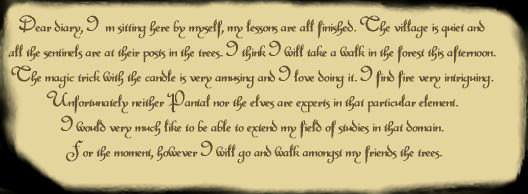 Dear diary, I m sitting here by myself, my lessons are all finished. The village is quiet and
all the sentinels are at their posts in the trees. I think I will take a walk in the forest this afternoon.
The magic trick with the candle is very amusing and I love doing it. I find fire very intriguing.
Unfortunately neither Pantal nor the elves are experts in that particular element.
I would very much like to be able to extend my field of studies in that domain.
For the moment, however I will go and walk amongst my friends the trees.